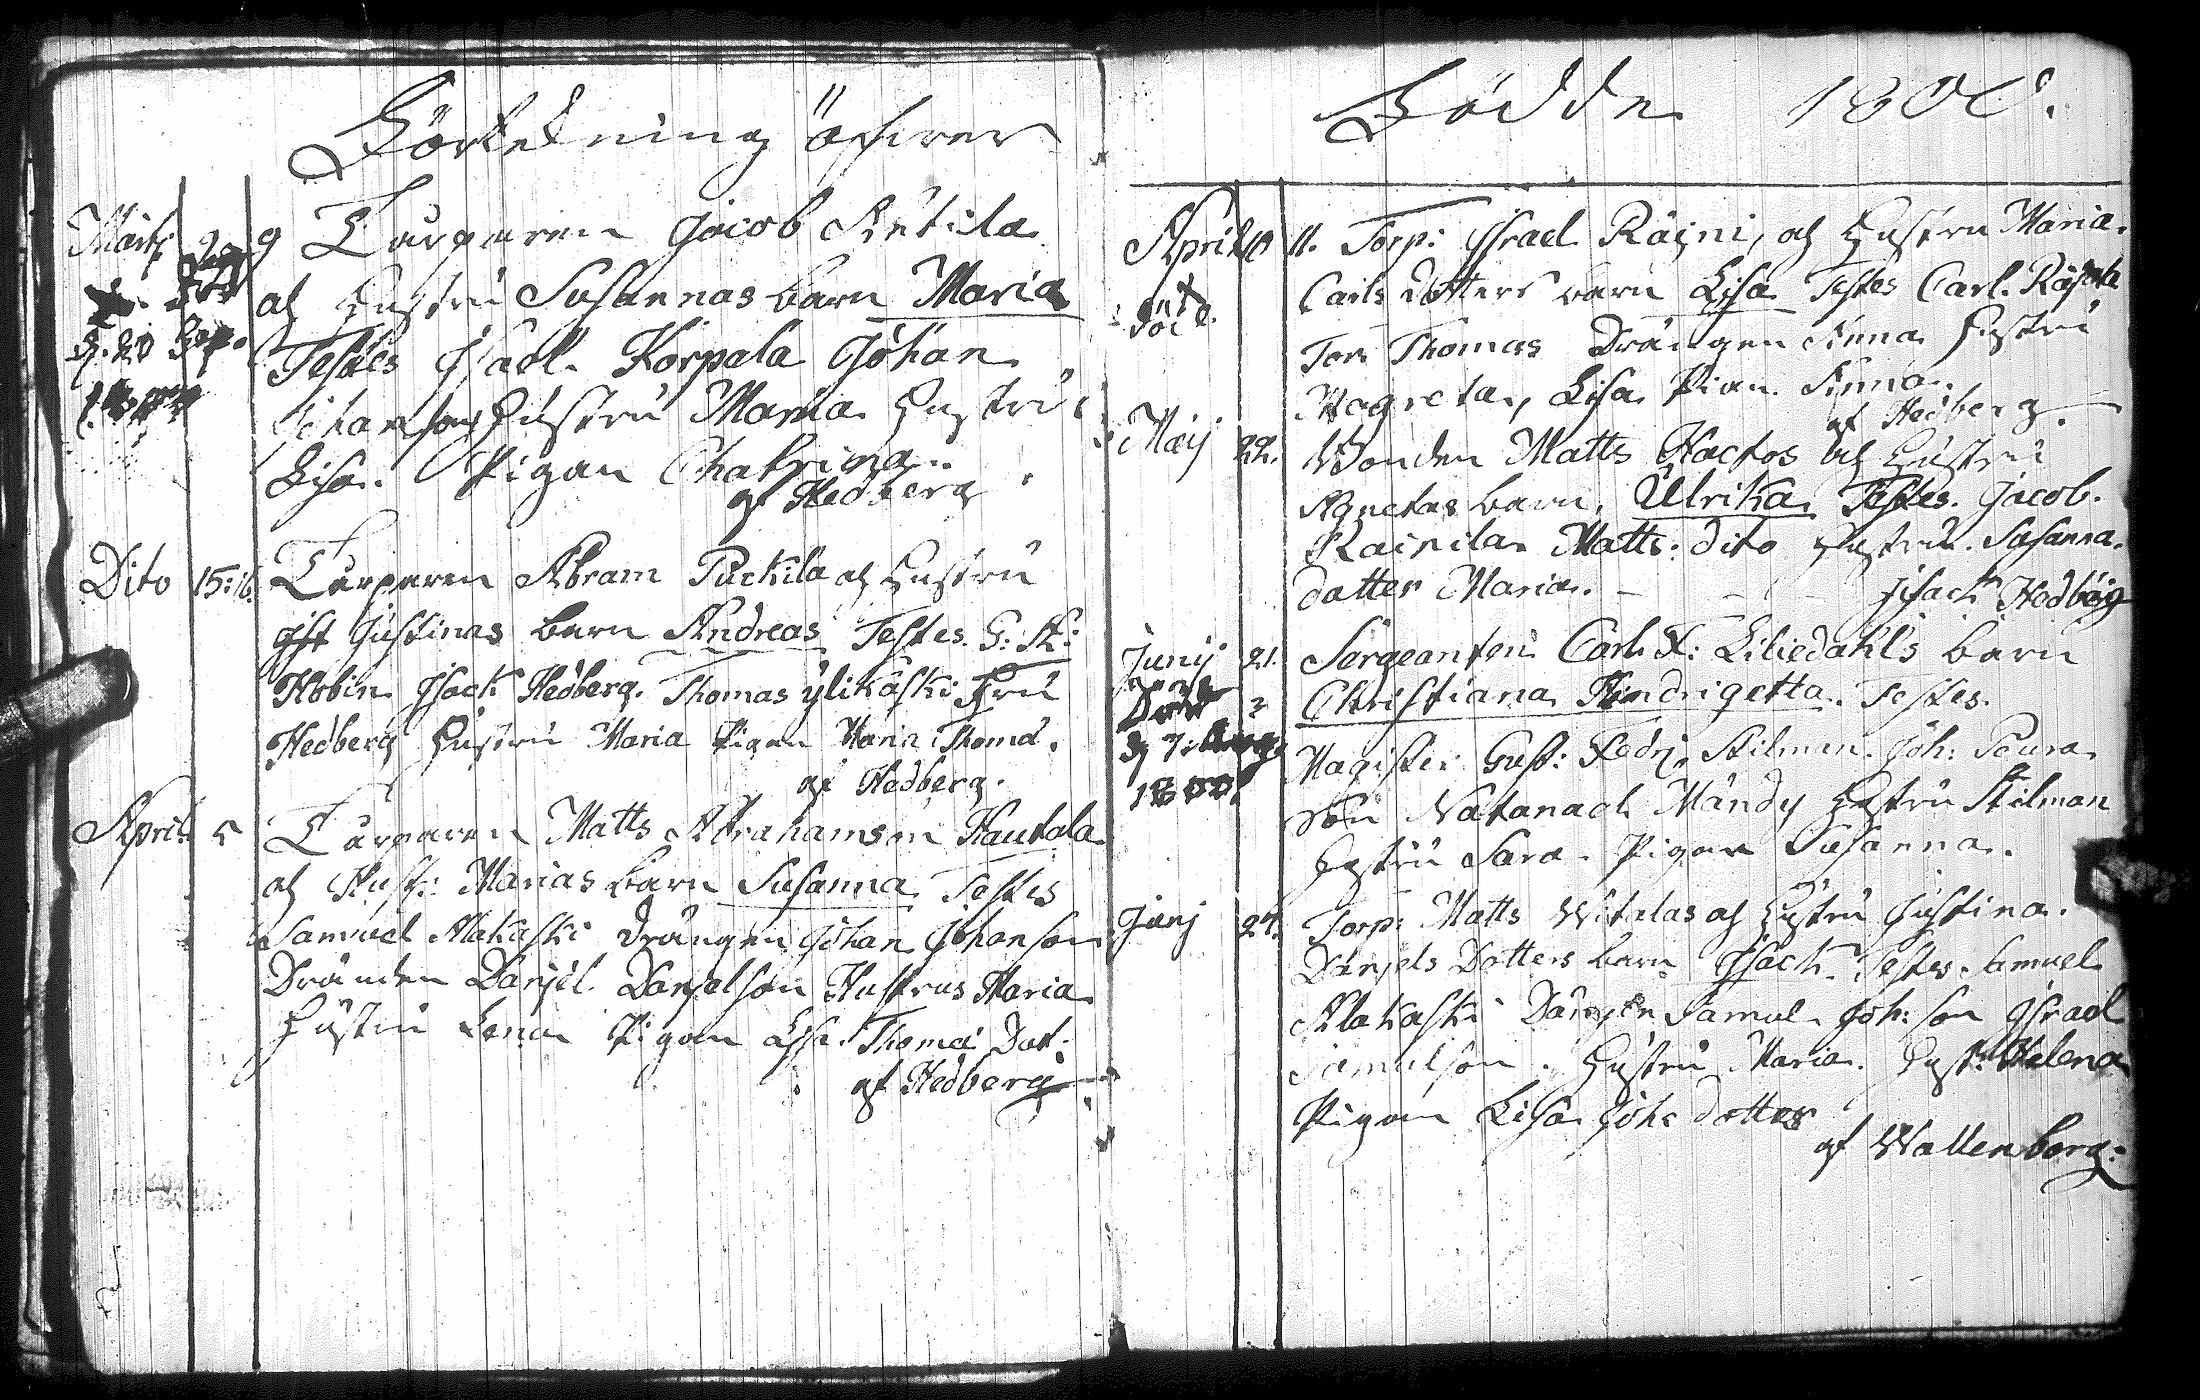 Förtekning öfwer
Martj 9 Torparen Jacob Retila
och Hustru Susannas barn Maria
Testes Isack Korpela Johan
Hustru Maria Hustru
Lisa. Pigan Chatrina
af Hedberg
Dito 15:16. Torparen Abram Puckila och Hustru
Justinas barn Andreas Testes G: A:
Hobin Isack Hedberg. Thomas ylikäski Fru
Hedberg Hustru Maria Pigan Maria Thomd.
af Hedberg.
April 5 Torparen Matts Abrahamson Hautala
och Hust: Marias barn Susanna Testes
Samuel Alakaski Drängen Johan Johanson
Danjel Danjelson Hustrus Maria
Hustru Lena Pigan Thomas Dot:
af Hedberg
Födde 1800.
April 11. Torp: Israel Räjni, och Hustru Maria.
Carls dotters barn Lisa Testes Carl.
död.
Thomas Drängen Anna Hustru
Magreta, Lisa Pian Anna.
af Hedberg.
Maij 22. Bonden Matts och Hustru
Agnetas barn, Ulrika Testes. Jacob.
Rainila Matts: dito Hustru. Susanna.
dotter Maria. - - - Isack Hedbärg
Junij 21. Sergeanten Carl F: Liliedahls barn
Christiana Hindrigetta. Testes.
d 7: Aug
1800
Magister Gust: Fedri, Ailman. Joh:
son Natanael Mändy Hustru Ailman
Hustru Sara. Pigan Susanna.
Junj 24. Torp: Matts Witalas och Hustru Justina.
Danjels Dotters barn Isack. Testes. Samuel
Alakaski Samul. Joh: son Israel
Samulson. Hustru Maria. Hust: Helena
Pigan Lisa Joh: dotter
af Wallenborg: